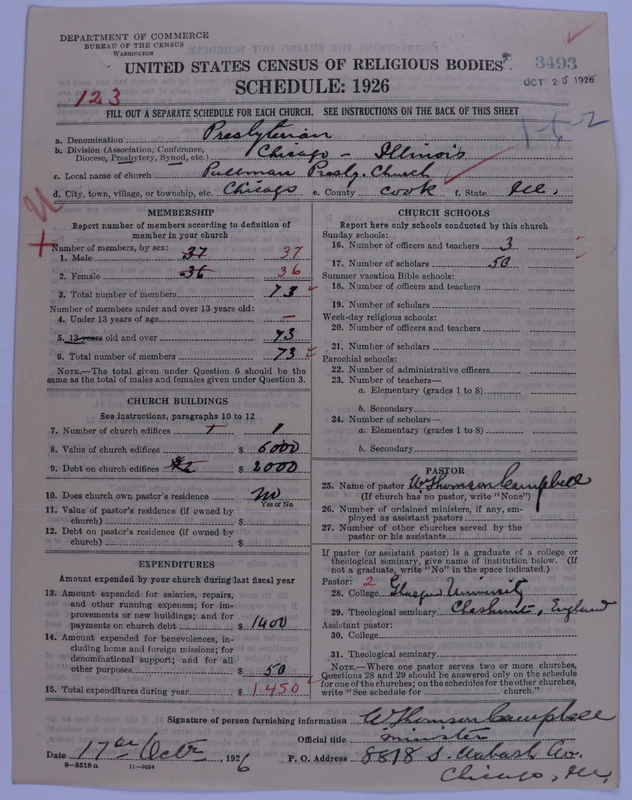 DEPARTMENT OF COMMERCE
BUREAU OF THE CENSUS
WASHINGTON
UNITED STATES CENSUS OF RELIGIOUS BODIES
3493
SCHEDULE: 1926
OCT 20 1926
123
FILL OUT A SEPARATE SCHEDULE FOR EACH CHURCH. SEE INSTRUCTIONS ON THE BACK OF THIS SHEET
1-6-2
a. Denomination Presbyterian
b. Division (Association, Conference, Diocese, Presbytery, Synod, etc.) Chicago - Illinois
c. Local name of church Pullman Presby. Church
d. City, town, village, or township, etc. Chicago e. County Cook f. State Ill.
MEMBERSHIP
Report number of members according to definition of
member in your church
Number of members, by sex:
1. Male 37 37
2. Female 36 36
3. Total number of members 73
Number of members under and over 13 years old:
4. Under 13 years of age —
5. 13 years old and over 73
6. Total number of members 73
NOTE.—The total given under Question 6 should be
same as the total of males and females given under Question 3.
CHURCH BUILDINGS
See instructions, paragraphs 10 to 12
7. Number of church edifices 1 1
8. Value of church edifices $ 6000
9. Debt on church edifices $ 2000
10. Does church own pastor's residence No
Yes or No
11. Value of pastor's residence (if owned by
church) $
12. Debt on pastor's residence (if owned by
church) $
EXPENDITURES
Amount expended by your church during last fiscal year
13. Amount expended for salaries, repairs,
and other running expenses; for im-
provements or new buildings; and for
payments on church debt $ 1400
14. Amount expended for benevolences, in-
cluding home and foreign missions; for
denominational support; and for all
other purposes $ 50
15. Total expenditures during year $ 1450
CHURCH SCHOOLS
Report here only schools conducted by this church
Sunday schools:
16. Number of officers and teachers 3
17. Number of scholars 50
Summer vacation Bible schools:
18. Number of officers and teachers
19. Number of scholars
Week-day religious schools:
20. Number of officers and teachers
21. Number of scholars
Parochial schools:
22. Number of administrative officers
23. Number of teachers—
a. Elementary (grades 1 to 8)
b. Secondary
24. Number of scholars—
a. Elementary (grades 1 to 8)
b. Secondary
PASTOR
25. Name of pastor W Thomson Campbell
(If church has no pastor, write "None")
26. Number of ordained ministers, if any, em-
ployed as assistant pastors
27. Number of other churches served by the
pastor or his assistants
If pastor (or assistant pastor) is a graduate of a college or
theological seminary, give name of institution below. (If
not a graduate, write "No" in the space indicated.)
Pastor: 2
28. College Glasgow University
29. Theological seminary Cheshunt, England
Assistant pastor:
30. College
31. Theological seminary
NOTE.—Where one pastor serves two or more churches,
Questions 28 and 29 should be answered only on the schedule
for one of the churches; on the schedules for the other churches,
write "See schedule for church."
Signature of person furnishing information W Thomson Campbell
Official title Minister
Date 17th Octr 1926 P. O. Address 8818 S. Wabash Av.
8-5518a 11-9664
Chicago, Ill.